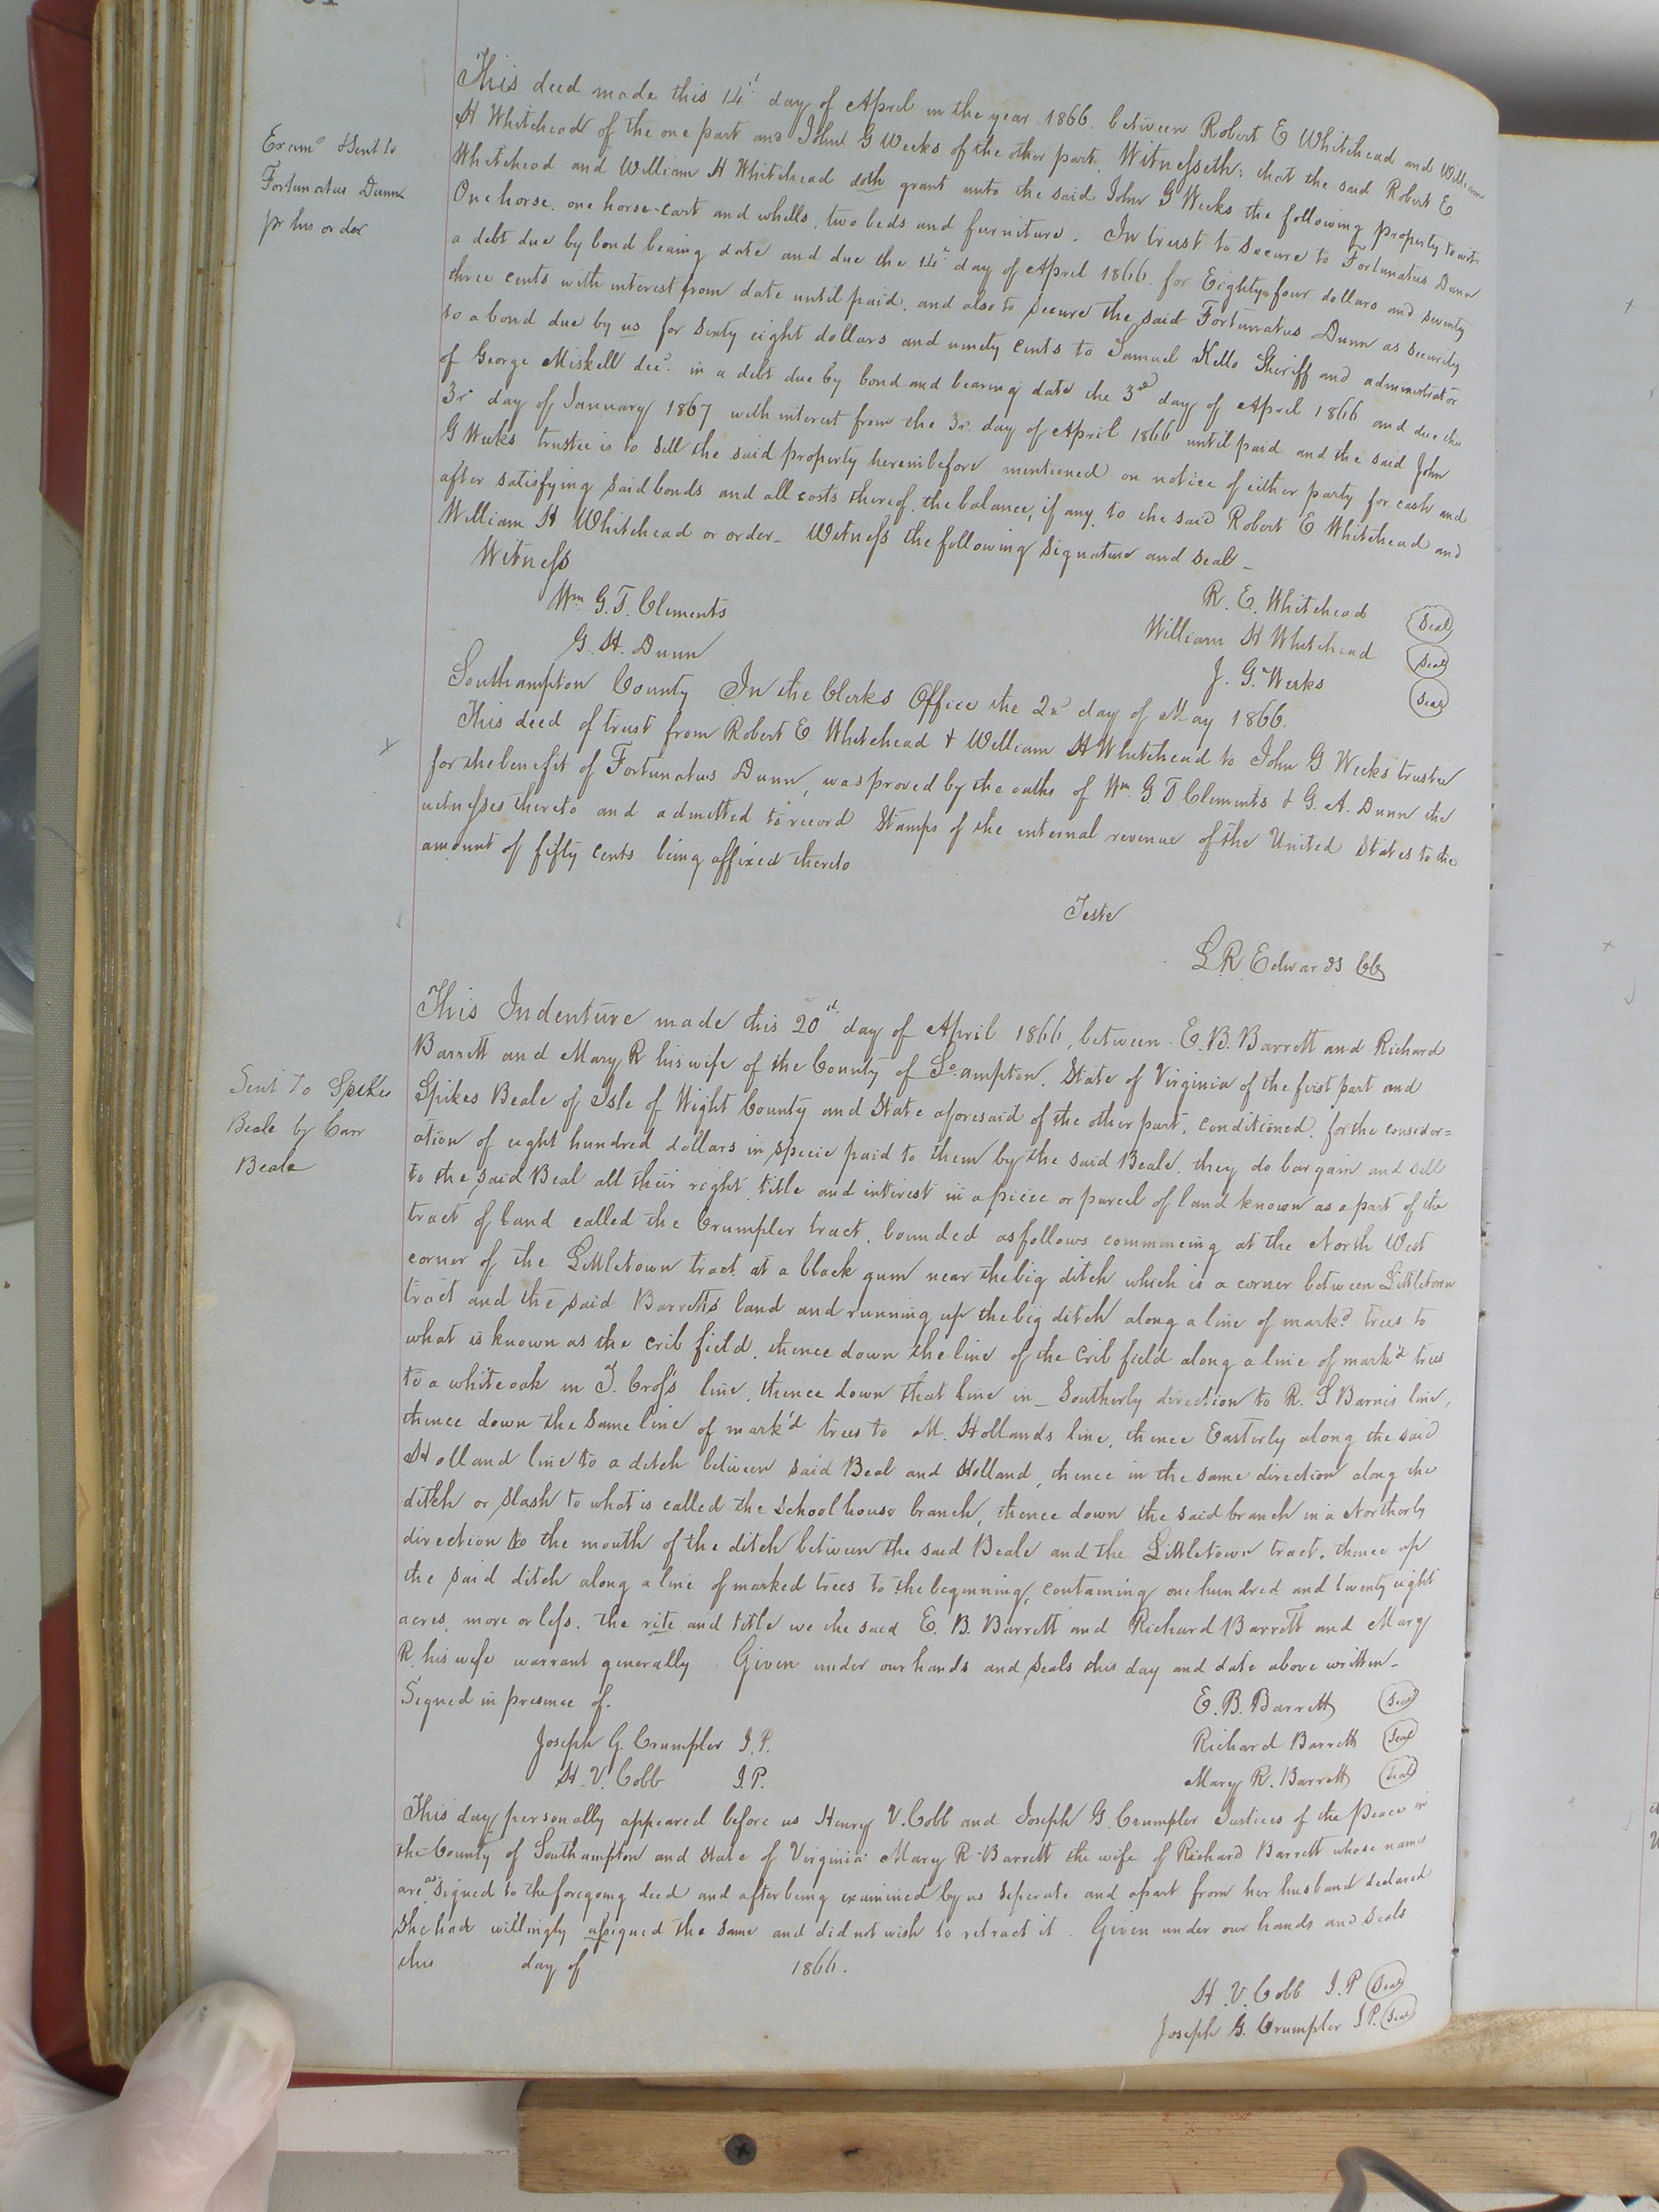 This deed made this 14th day of April in the year 1866. between Robert E Whitehead and William
H Whitehead of the one part and John G Weeks of the other part, Witnesseth: that the said Robert E
Whitehead and William H Whitehead doth grant unto the said John G Weeks the following property to wit:
One horse, one horse-cart and whells, two beds and furniture. In trust to secure to Fortunatus Dunn
a debt due by bond bearing date and due the 14th day of April 1866 for Eighty four dollars and seventy
three cents with interest from date until paid, and also to secure the said Fortunatus Dunn as security
to a bond due by us for sixty eight dollars and ninety cents to Samuel Kello Sheriff and administrator
of George Miskell decd. in a debt due by bond and bearing date the 3rd day of April 1866 and due the
3r day of January 1867 with interest from the 3r day of April 1866 until paid and the said John
G Weeks trustee is to sell the said property hereinbefore mentioned on notice of either party for cash and
after satisfying said bonds and all costs thereof, the balance, if any, to the said Robert E Whitehead and
William H Whitehead or order_ Witness the following signature and seal_
Witness
R. E. Whitehead (Seal)
Wm G. T. Clements
William H Whitehead (Seal)
G. H. Dunn
J. G. Weeks (Seal)
Southampton County In the Clerks Office the 2d day of May 1866.
This deed of trust from Robert E. Whitehead & William H Whitehead to John G Weeks trustee
for the benefit of Fortunatus Dunn, was proved by the oaths of Wm G T Clements & G. A. Dunn the
witnesses thereto and admitted to record Stamps of the internal revenue of the United States to the
amount of fifty cents being affixed thereto
Teste
L. R. Edwards CC
Exam'd & Sent to
Fortunatus Dunn
pr his order
This Indenture made this 20th day of April 1866, between E. B. Barrett and Richard
Barrett and Mary R his wife of the County of So.ampton, State of Virginia of the first part and
Spikes Beale of Isle of Wight County and State aforesaid of the other part, conditioned, for the consider=
ation of eight hundred dollars in specie paid to them by the said Beale, they do bargain and sell
to the said Beal all their right, title and interest in a piece or parcel of land known as a part of the
tract of land called the Crumpler tract, bounded as follows commencing at the North West
corner of the Littletown tract, at a black gum near the big ditch which is a corner between Littletown
tract and the said Barretts land and running up the big ditch along a line of markd trees to
what is known as the crib field, thence down the line of the Crib field along a line of mark'd trees
to a white oak in J. Cross line, thence down that line in_ Southerly direction to R. S Barnes line,
thence down the same line of mark'd trees to M. Hollands line, thence Easterly along the said
Holland line to a ditch between said Beal and Holland, thence in the same direction along the
ditch or slash to what is called the school house branch, thence down the said branch in a Northerly
direction to the mouth of the ditch between the said Beale and the Littletown tract, thence up
the said ditch along a line of marked trees to the beginning, containing one hundred and twenty eight
acres, more or less. The rite and title we the said E. B. Barrett and Richard Barrett and Mary
R. his wife warrant generally. Given under our hands and seals this day and date above written_
Signed in presence of.
E. B. Barrett (Seal)
Joseph G. Crumpler J. P.
Richard Barrett (Seal)
H. V. Cobb J. P.
Mary R. Barrett (Seal)
Sent To Spikes
Beale by Carr
Beale
This day personally appeared before us Henry V. Cobb and Joseph G. Crumpler Justices of the Peace in
the County of Southampton and state of Virginia Mary R. Barrett the wife of Richard Barrett whose names
are as signed to the foregoing deed and after being examined by us seperate and apart from her husband declared
she had willingly assigned the same and did not wish to retract it. Given under our hands and seals
this day of 1866.
H. V. Cobb J. P (Seal)
Joseph G. Crumpler J. P. (Seal)